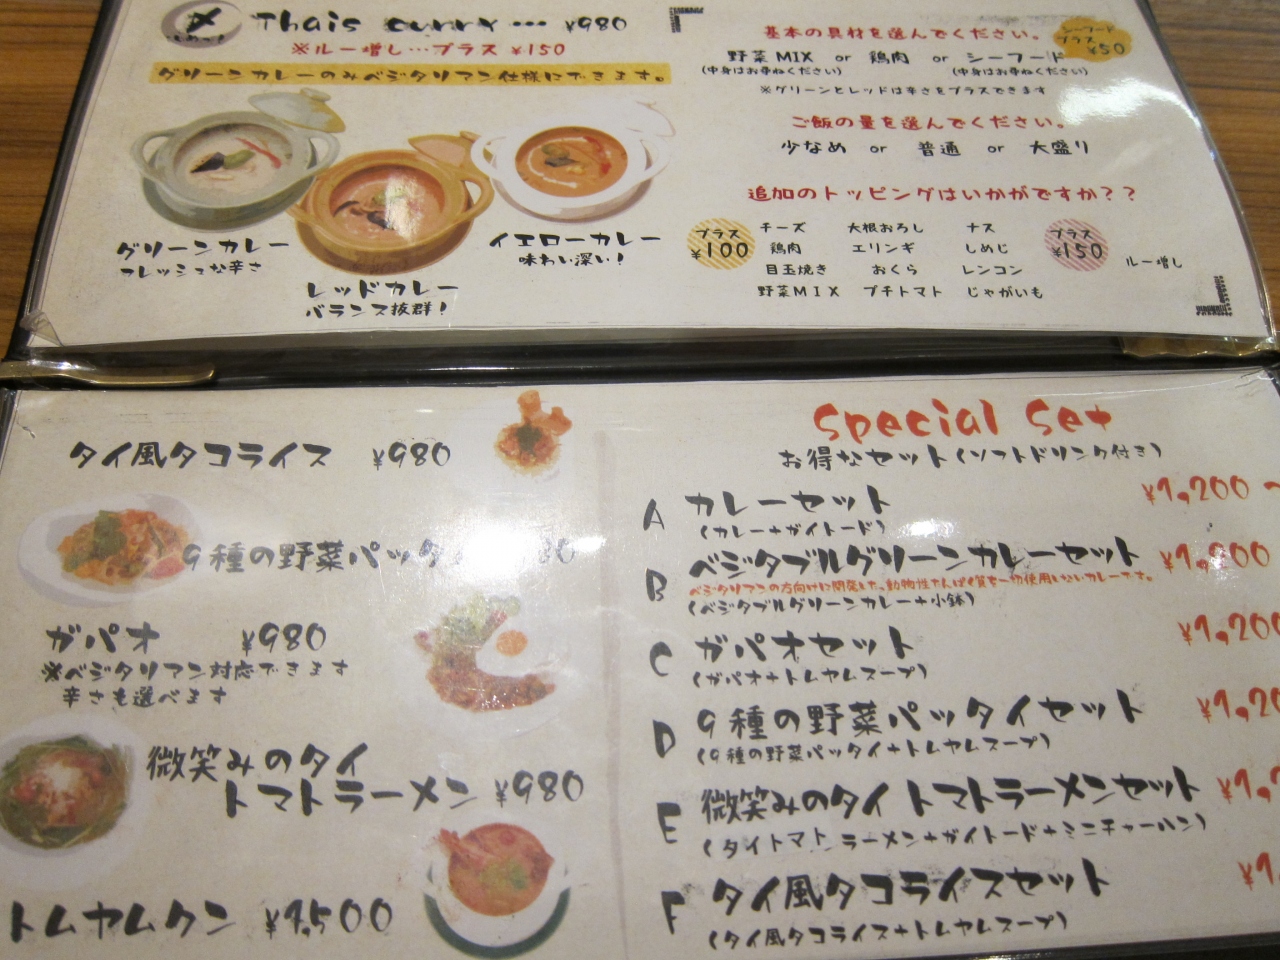 〆 Thais curry… ¥980
※ルー増し…プラス ¥150
グリーンカレーのみベジタリアン仕様にできます。
グリーンカレー
フレッシュな辛さ
レッドカレー
バランス抜群!
イエローカレー
味わい深い!
基本の具材を選んでください。
シーフード
プラス
¥50
野菜MIX or 鶏肉 or シーフード
(中身はお尋ねください) (中身はお尋ねください)
※グリーンとレッドは辛さをプラスできます
ご飯の量を選んでください。
少なめ or 普通 or 大盛り
追加のトッピングはいかがですか??
プラス
¥100
チーズ 大根おろし ナス
鶏肉 エリンギ しめじ
目玉焼き おくら レンコン
野菜MIX プチトマト じゃがいも
プラス
¥150
ルー増し
タイ風タコライス ¥980
9種の野菜パッタ 80
ガパオ ¥980
※ベジタリアン対応できます
辛さも選べます
微笑みのタイ
トマトラーメン ¥980
トムヤムクン ¥1,500
Special Set
お得なセット(ソフトドリンク付き)
A カレーセット ¥1,200~
(カレー+ガイトード)
B ベジタブルグリーンカレーセット ¥1,200
ベジタリアンの方向けに開発した、動物性たんぱく質を一切使用しないカレーです。
(ベジタブルグリーンカレー+小鉢)
C ガパオセット ¥1,200
(ガパオ+トムヤムスープ)
D 9種の野菜パッタイセット ¥1,20
(9種の野菜パッタイ+トムヤムスープ)
E 微笑みのタイ トマトラーメンセット ¥1,
(タイトマトラーメン+ガイトード+ミニチャーハン)
F タイ風タコライスセット ¥1
(タイ風タコライス+トムヤムスープ)